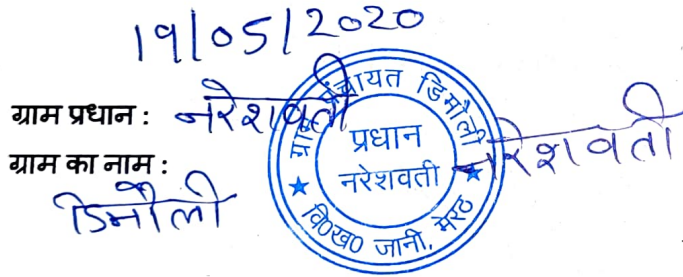 19/05/2020
ग्राम प्रधान : नरेशवती
ग्राम का नाम :
डिमौली
ग्राम पंचायत डिमौली
प्रधान
नरेशवती
वि०ख० जानी, मेरठ
नरेशवती